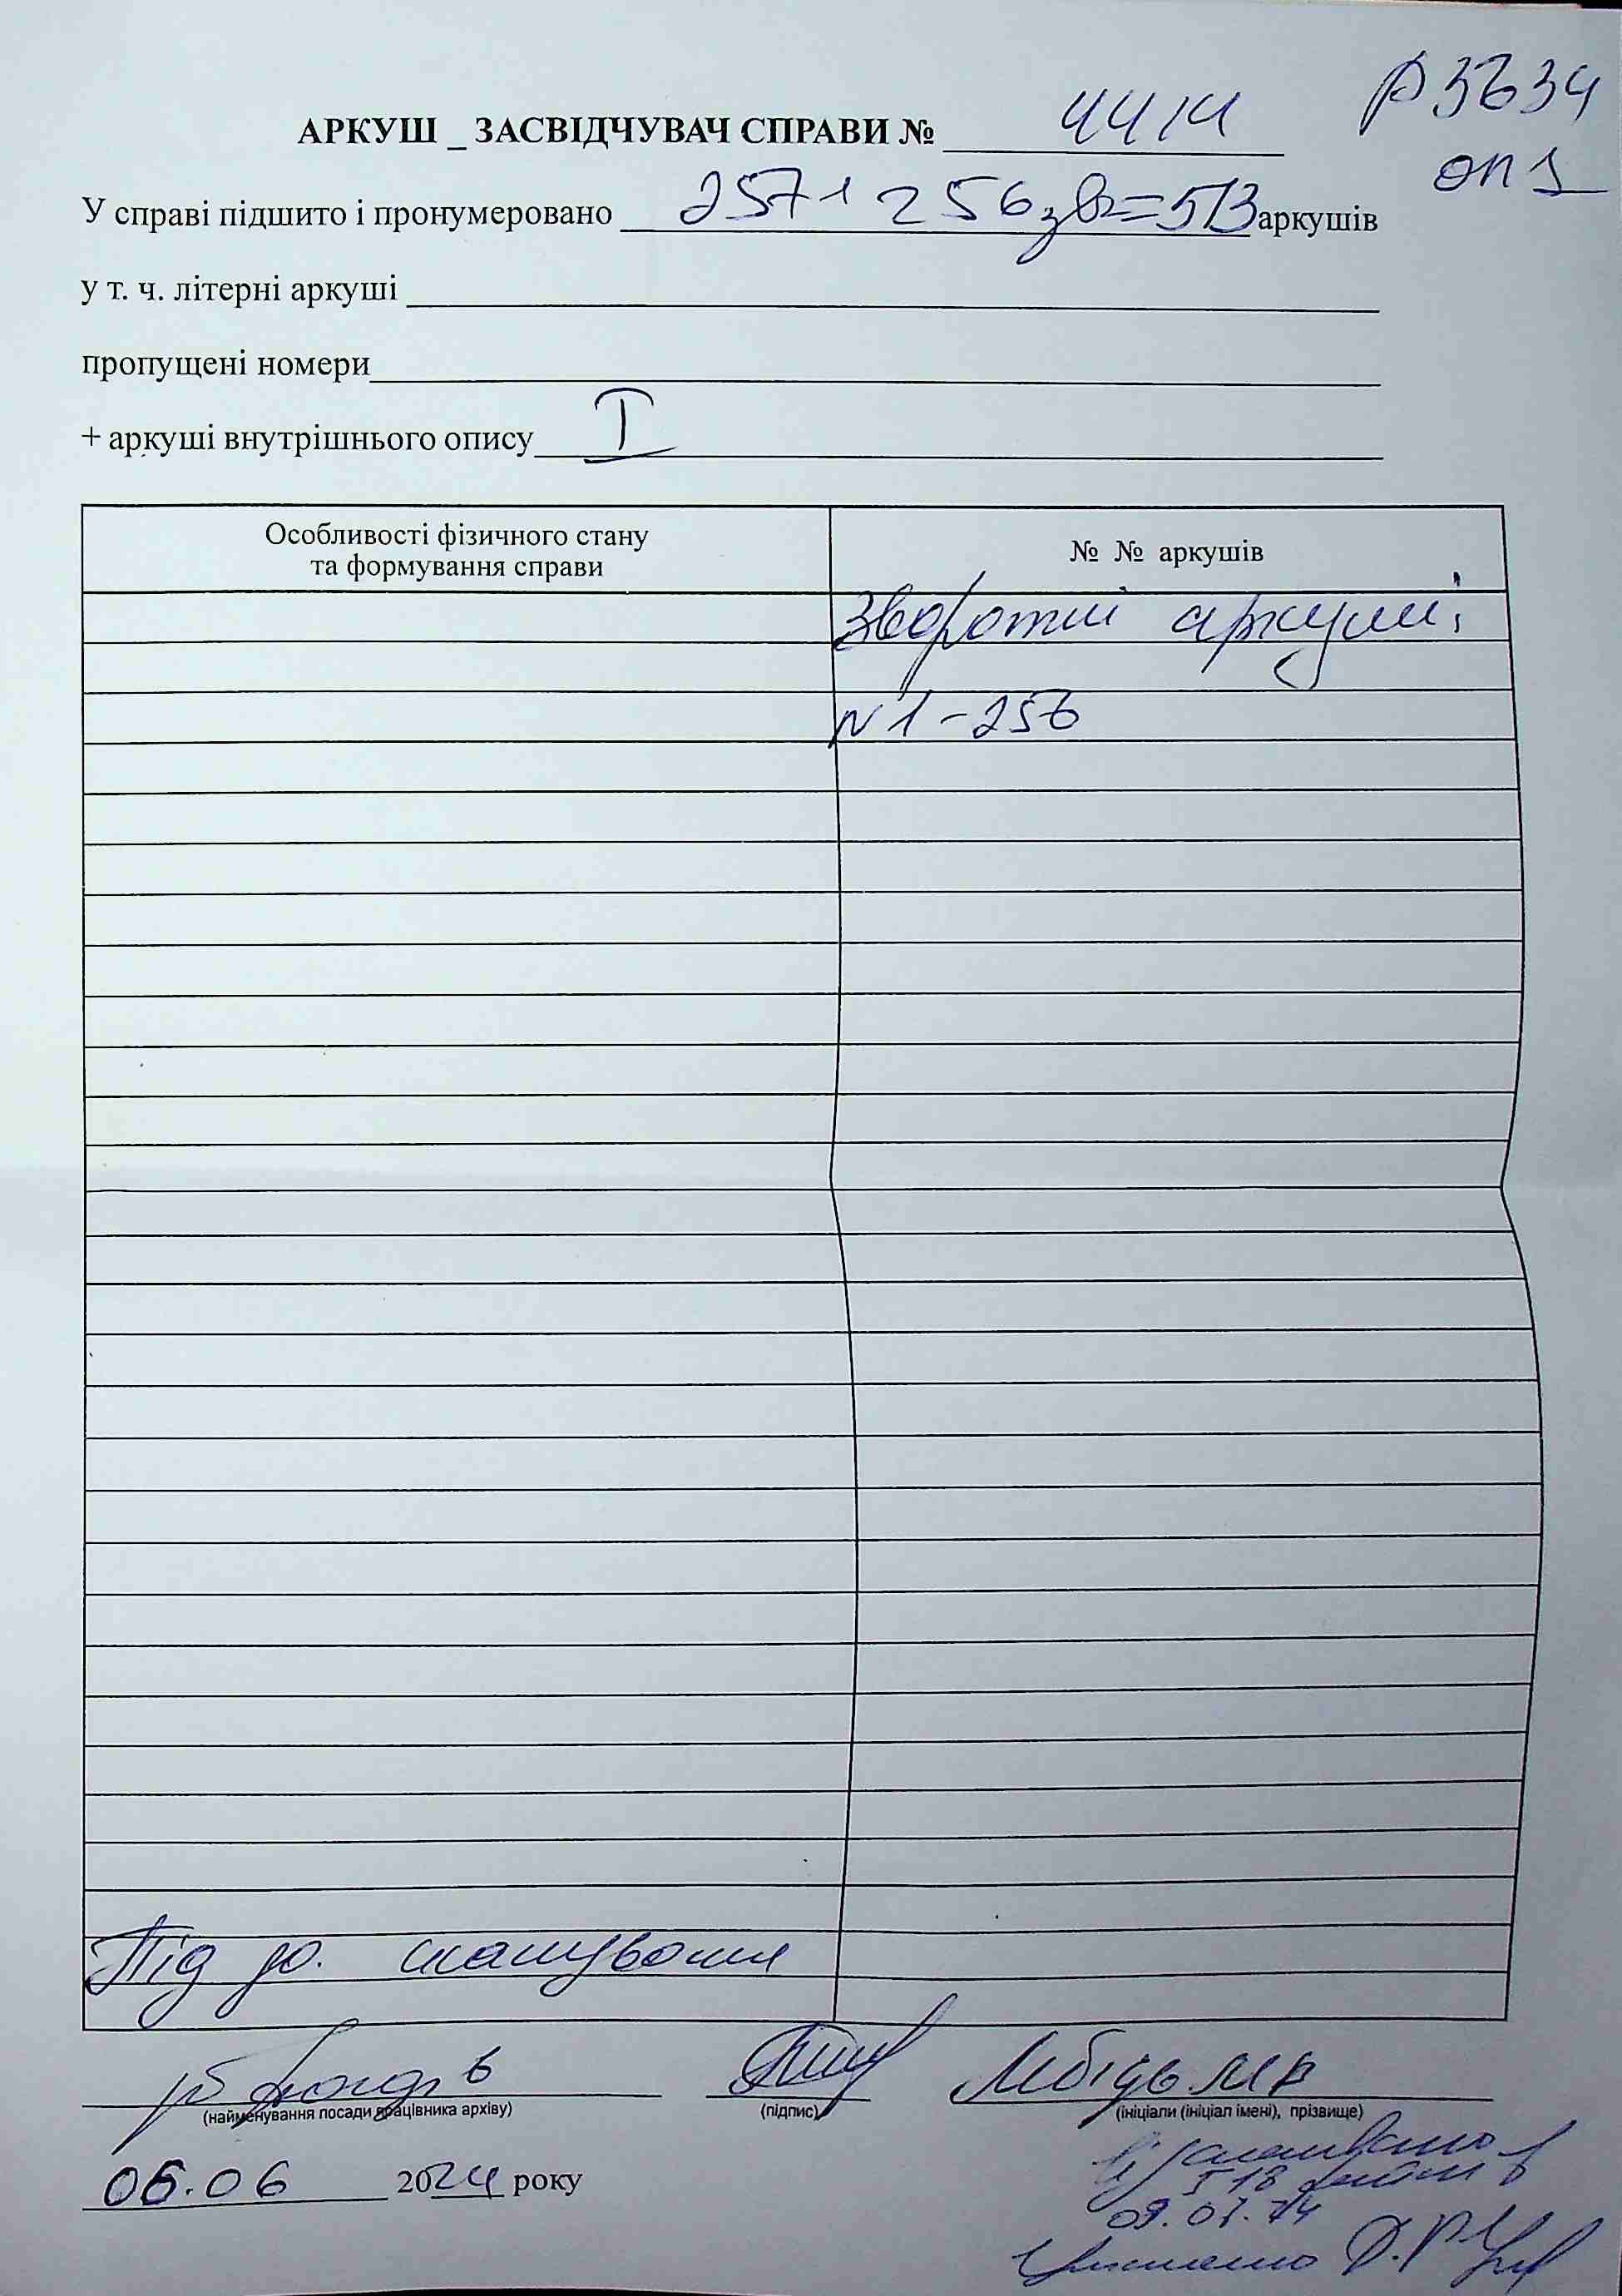 р 3634
оп 1
АРКУШ _ ЗАСВІДЧУВАЧ СПРАВИ № 4414
У справі підшито і пронумеровано 257+256зв=513 аркушів
у т. ч. літерні аркуші
пропущені номери
+ аркуші внутрішнього опису I
Особливості фізичного стану
та формування справи
№ № аркушів
Зворотні аркуші:
N 1-256
Під до. сканування
(найменування посади працівника архіву)
(підпис)
(ініціали (ініціал імені), прізвище)
06.06 2024 року
518
09.07.24